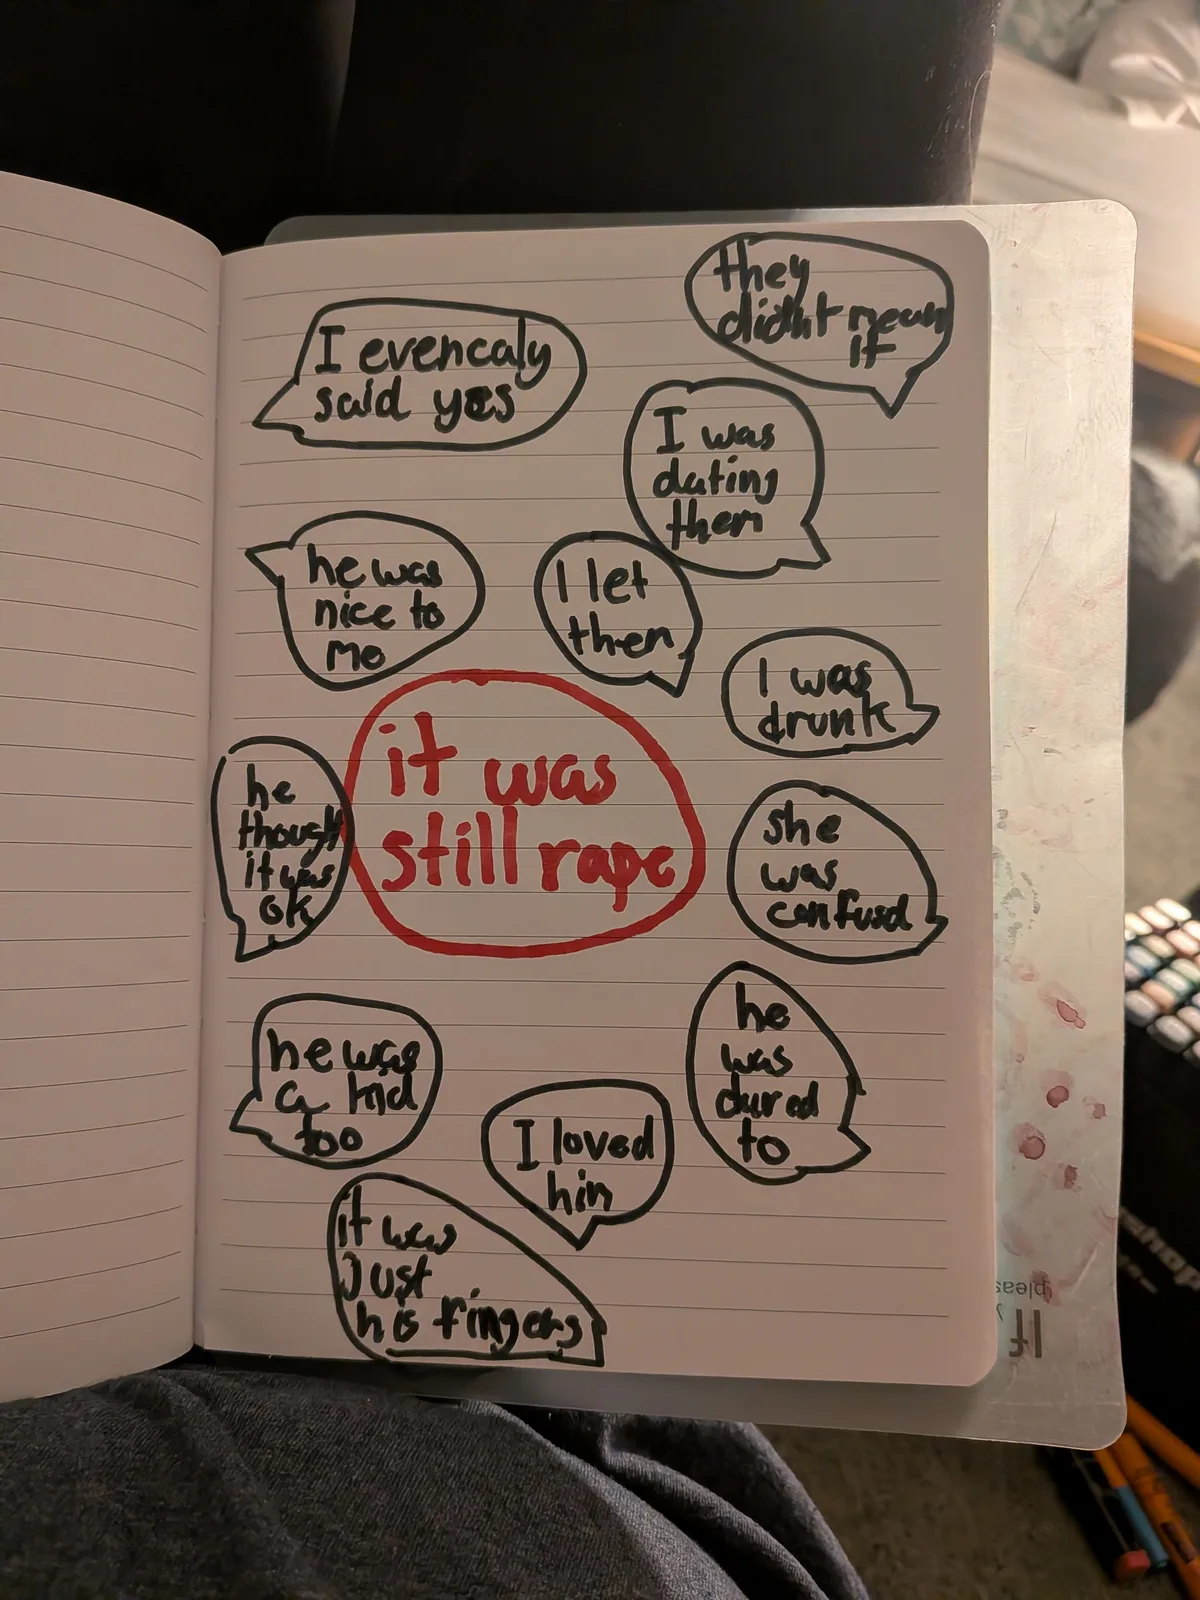 they
didnt mean
it
I evencaly
said yes
I was
dating
them
he was
nice to
me
I let
them
I was
drunk
it was
still rape
he
though
it was
ok
she
was
confusd
he was
a kid
too
he
was
dared
to
I loved
him
it was
Just
his fingers
pleas
If